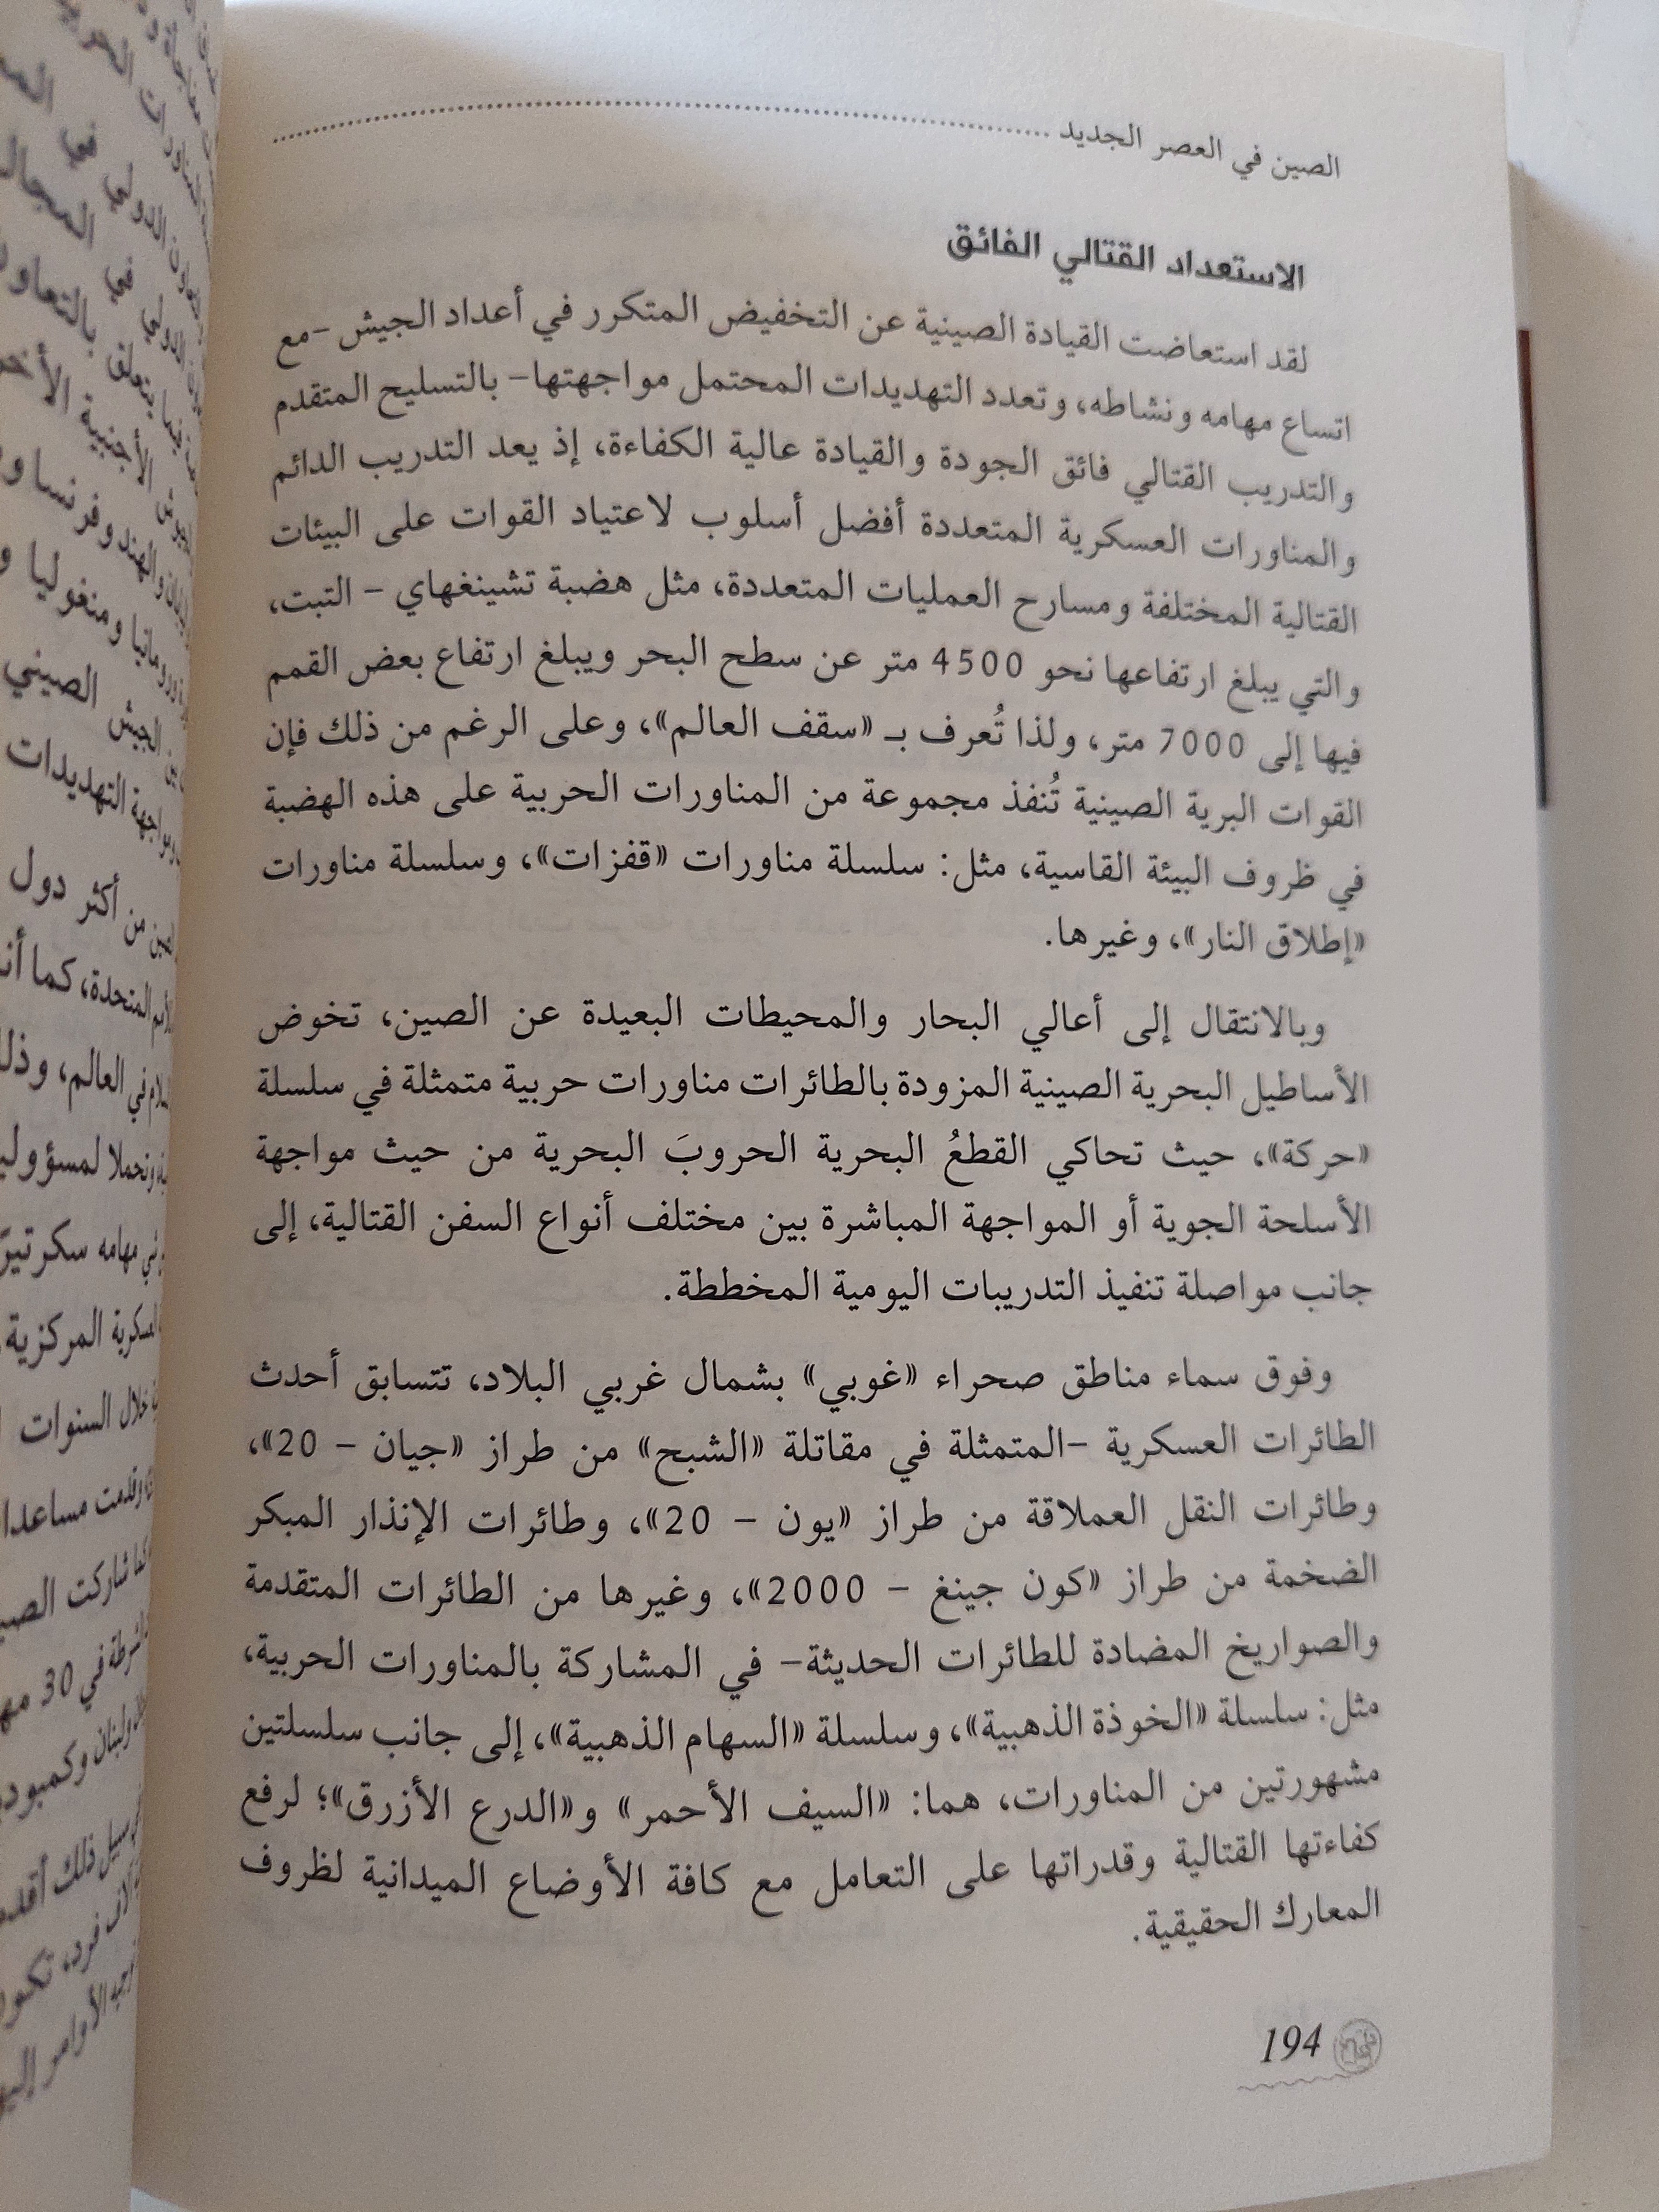 الصين في العصر الجديد
الاستعداد القتالي الفائق
لقد استعاضت القيادة الصينية عن التخفيض المتكرر في أعداد الجيش –مع
اتساع مهامه ونشاطه، وتعدد التهديدات المحتمل مواجهتها– بالتسليح المتقدم
والتدريب القتالي فائق الجودة والقيادة عالية الكفاءة، إذ يعد التدريب الدائم
والمناورات العسكرية المتعددة أفضل أسلوب لاعتياد القوات على البيئات
القتالية المختلفة ومسارح العمليات المتعددة، مثل هضبة تشينغهاي – التبت،
والتي يبلغ ارتفاعها نحو 4500 متر عن سطح البحر ويبلغ ارتفاع بعض القمم
فيها إلى 7000 متر، ولذا تُعرف بـ «سقف العالم»، وعلى الرغم من ذلك فإن
القوات البرية الصينية تُنفذ مجموعة من المناورات الحربية على هذه الهضبة
في ظروف البيئة القاسية، مثل: سلسلة مناورات «قفزات»، وسلسلة مناورات
«إطلاق النار»، وغيرها.
وبالانتقال إلى أعالي البحار والمحيطات البعيدة عن الصين، تخوض
الأساطيل البحرية الصينية المزودة بالطائرات مناورات حربية متمثلة في سلسلة
«حركة»، حيث تحاكي القطعُ البحرية الحروبَ البحرية من حيث مواجهة
الأسلحة الجوية أو المواجهة المباشرة بين مختلف أنواع السفن القتالية، إلى
جانب مواصلة تنفيذ التدريبات اليومية المخططة.
وفوق سماء مناطق صحراء «غوبي» بشمال غربي البلاد، تتسابق أحدث
الطائرات العسكرية –المتمثلة في مقاتلة «الشبح» من طراز «جيان – 20»،
وطائرات النقل العملاقة من طراز «يون – 20»، وطائرات الإنذار المبكر
الضخمة من طراز «كون جينغ – 2000»، وغيرها من الطائرات المتقدمة
والصواريخ المضادة للطائرات الحديثة– في المشاركة بالمناورات الحربية،
مثل: سلسلة «الخوذة الذهبية»، وسلسلة «السهام الذهبية»، إلى جانب سلسلتين
مشهورتين من المناورات، هما: «السيف الأحمر» و«الدرع الأزرق»؛ لرفع
كفاءتها القتالية وقدراتها على التعامل مع كافة الأوضاع الميدانية لظروف
المعارك الحقيقية.
194